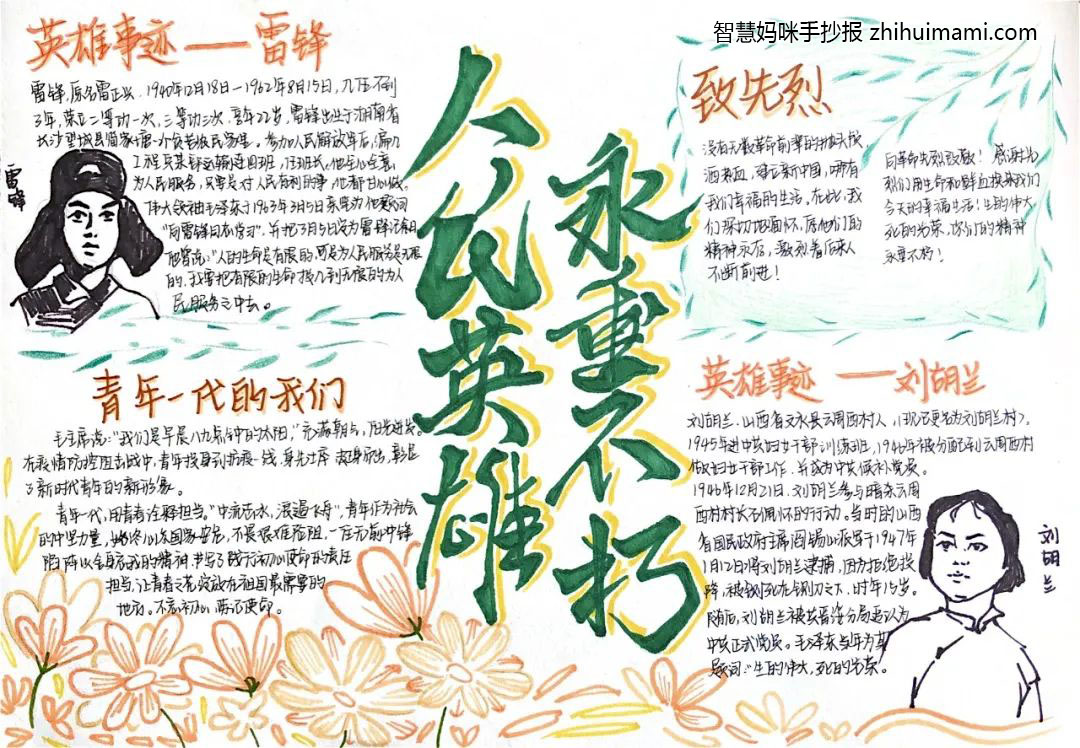 智慧妈咪手抄报 zhihuimami.com
英雄事迹——雷锋
雷锋,原名雷正兴,1940年12月18日—1962年8月15日,
3年,荣立二等功一次,三等功三次,享年22岁,雷锋出生于湖南省
长沙望城县简家塘一个贫苦农民家里。参加人民解放军后,编入
工程兵某部运输连四班,任班长,他全心全意
为人民服务,只要是对人民有利的事,他都甘心做。
伟大领袖毛泽东于1963年3月5日亲笔为他题词
“向雷锋同志学习”,并把3月5日定为雷锋纪念日
他曾说:“人的生命是有限的,可是为人民服务是无限
的,我要把有限的生命投入到无限的为人
民服务之中去。
雷峰
青年一代的我们
毛主席说:“我们是早晨八九点钟的太阳,”充满朝气,阳光迸发。
在疫情防控阻击战中,青年投身到抗疫一线,身先士卒 挺身而出,彰显
了新时代青年的新形象。
青年一代,用青春诠释担当,“中流击水,浪遏飞舟”,青年作为社会
的中坚力量,始终心系国家安危,不畏艰难险阻,一往无前冲锋
陷阵以舍身忘我的精神书写了践行初心使命的责任
担当,让青春之花绽放在祖国最需要的
地方。不忘初心,牢记使命。
人民英雄
永垂不朽
致先烈
没有无数革命前辈的抛头颅
洒热血,建立新中国,哪有
我们幸福的生活,在此,我
们深切地缅怀,愿他们的
精神永存,激励着后来人
不断前进!
向革命先烈致敬!感谢先
烈们用生命和鲜血换来我们
今天的幸福生活!生的伟大
死的光荣,你们的精神
永垂不朽!
英雄事迹——刘胡兰
刘胡兰,山西省文水县云周西村人,(现已更名为刘胡兰村)。
1945年进中共妇女干部训练班,1946年被分配到云周西村
做妇女干部工作,并成为中共候补党员。
1946年12月21日,刘胡兰参与暗杀云周
西村村长石佩怀的行动。当时的山西
省国民政府主席阎锡山派军于1947年
1月12日将刘胡兰逮捕,因为拒绝投
降,被铡死在铡刀之下,时年15岁。
随后,刘胡兰被共晋绥分局追认为
中共正式党员。毛泽东当年为其
题词:“生的伟大,死的光荣。
刘胡兰